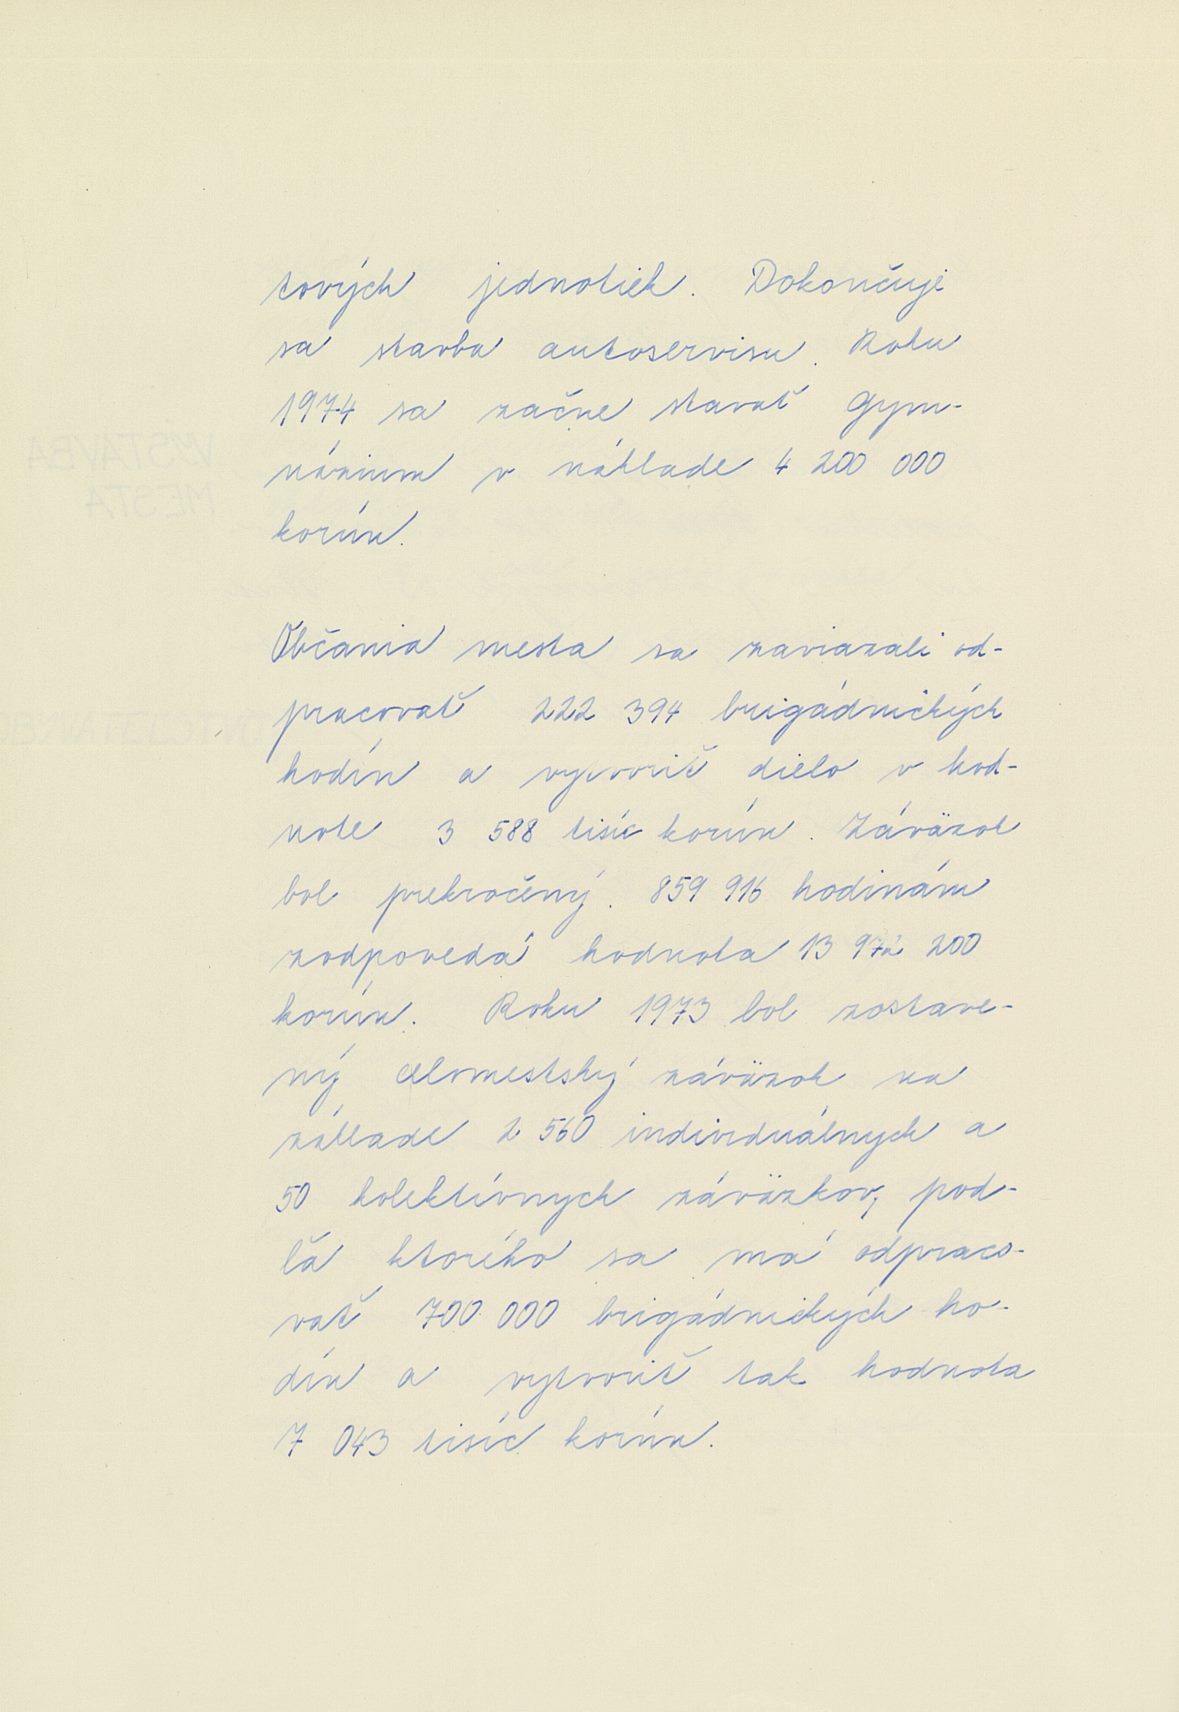 tových jednotiek. Dokončuje
sa stavba autoservisu. Roku
1974 sa začne stavať Gym-
názium v náklade 4 200 000
korún.
Občania mesta sa zaviazali od-
pracovať 222 394 brigádnických
hodín a vytvoriť dielo v hod-
note 3 588 tisíc korún. Záväzok
bol prekročený. 859 916 hodinám
zodpovedá hodnota 13 972 200
korún. Roku 1973 bol zostave-
ný celomestský záväzok na
základe 2 560 individuálnych a
50 kolektívnych záväzkov, pod-
ľa ktorého sa má odpraco-
vať 700 000 brigádnických ho-
dín a vytvoriť tak hodnota
7 043 tisíc korún.